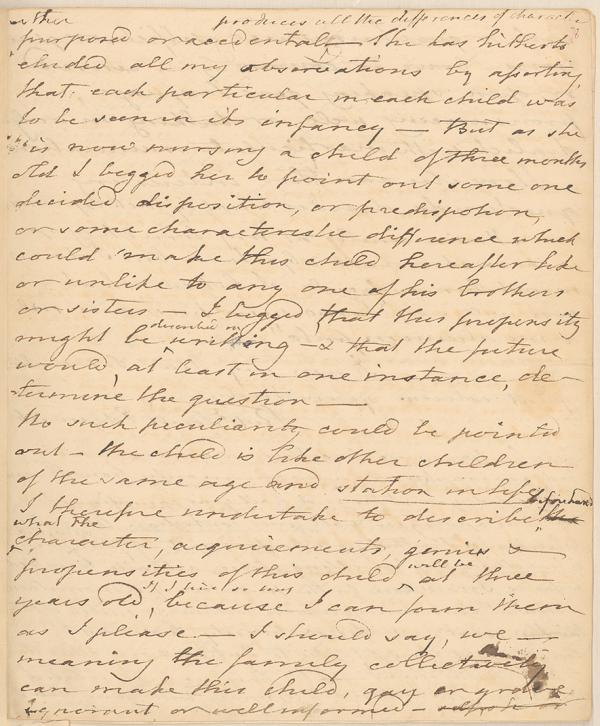 produces all the differences of character
purposed or accidental. She has hitherto
eluded all my observations by asserting
that each particular in each child was
to be seen in its infancy — But as she
is now nursing a child of three months
old I begged her to point out some one
decided disposition, or predispotion,
or some characteristic difference which
could make this child hereafter like
or unlike to any one of his brothers
or sisters — I begged that this propensity
described in
might be writing — & that the future
would, at least in one instance, de-
-termine the question —
No such peculiarity could be pointed
out — the child is like other children
of the same age and station in life
beforehand
I therefore undertake to describe
what the
character, acquirements, genius &
will be
propensities of this child at three
If I live so
years old, because I can form them
as I please — I should say, we —
meaning the family collectively
can make this child, gay or grave
ignorant or well informed —